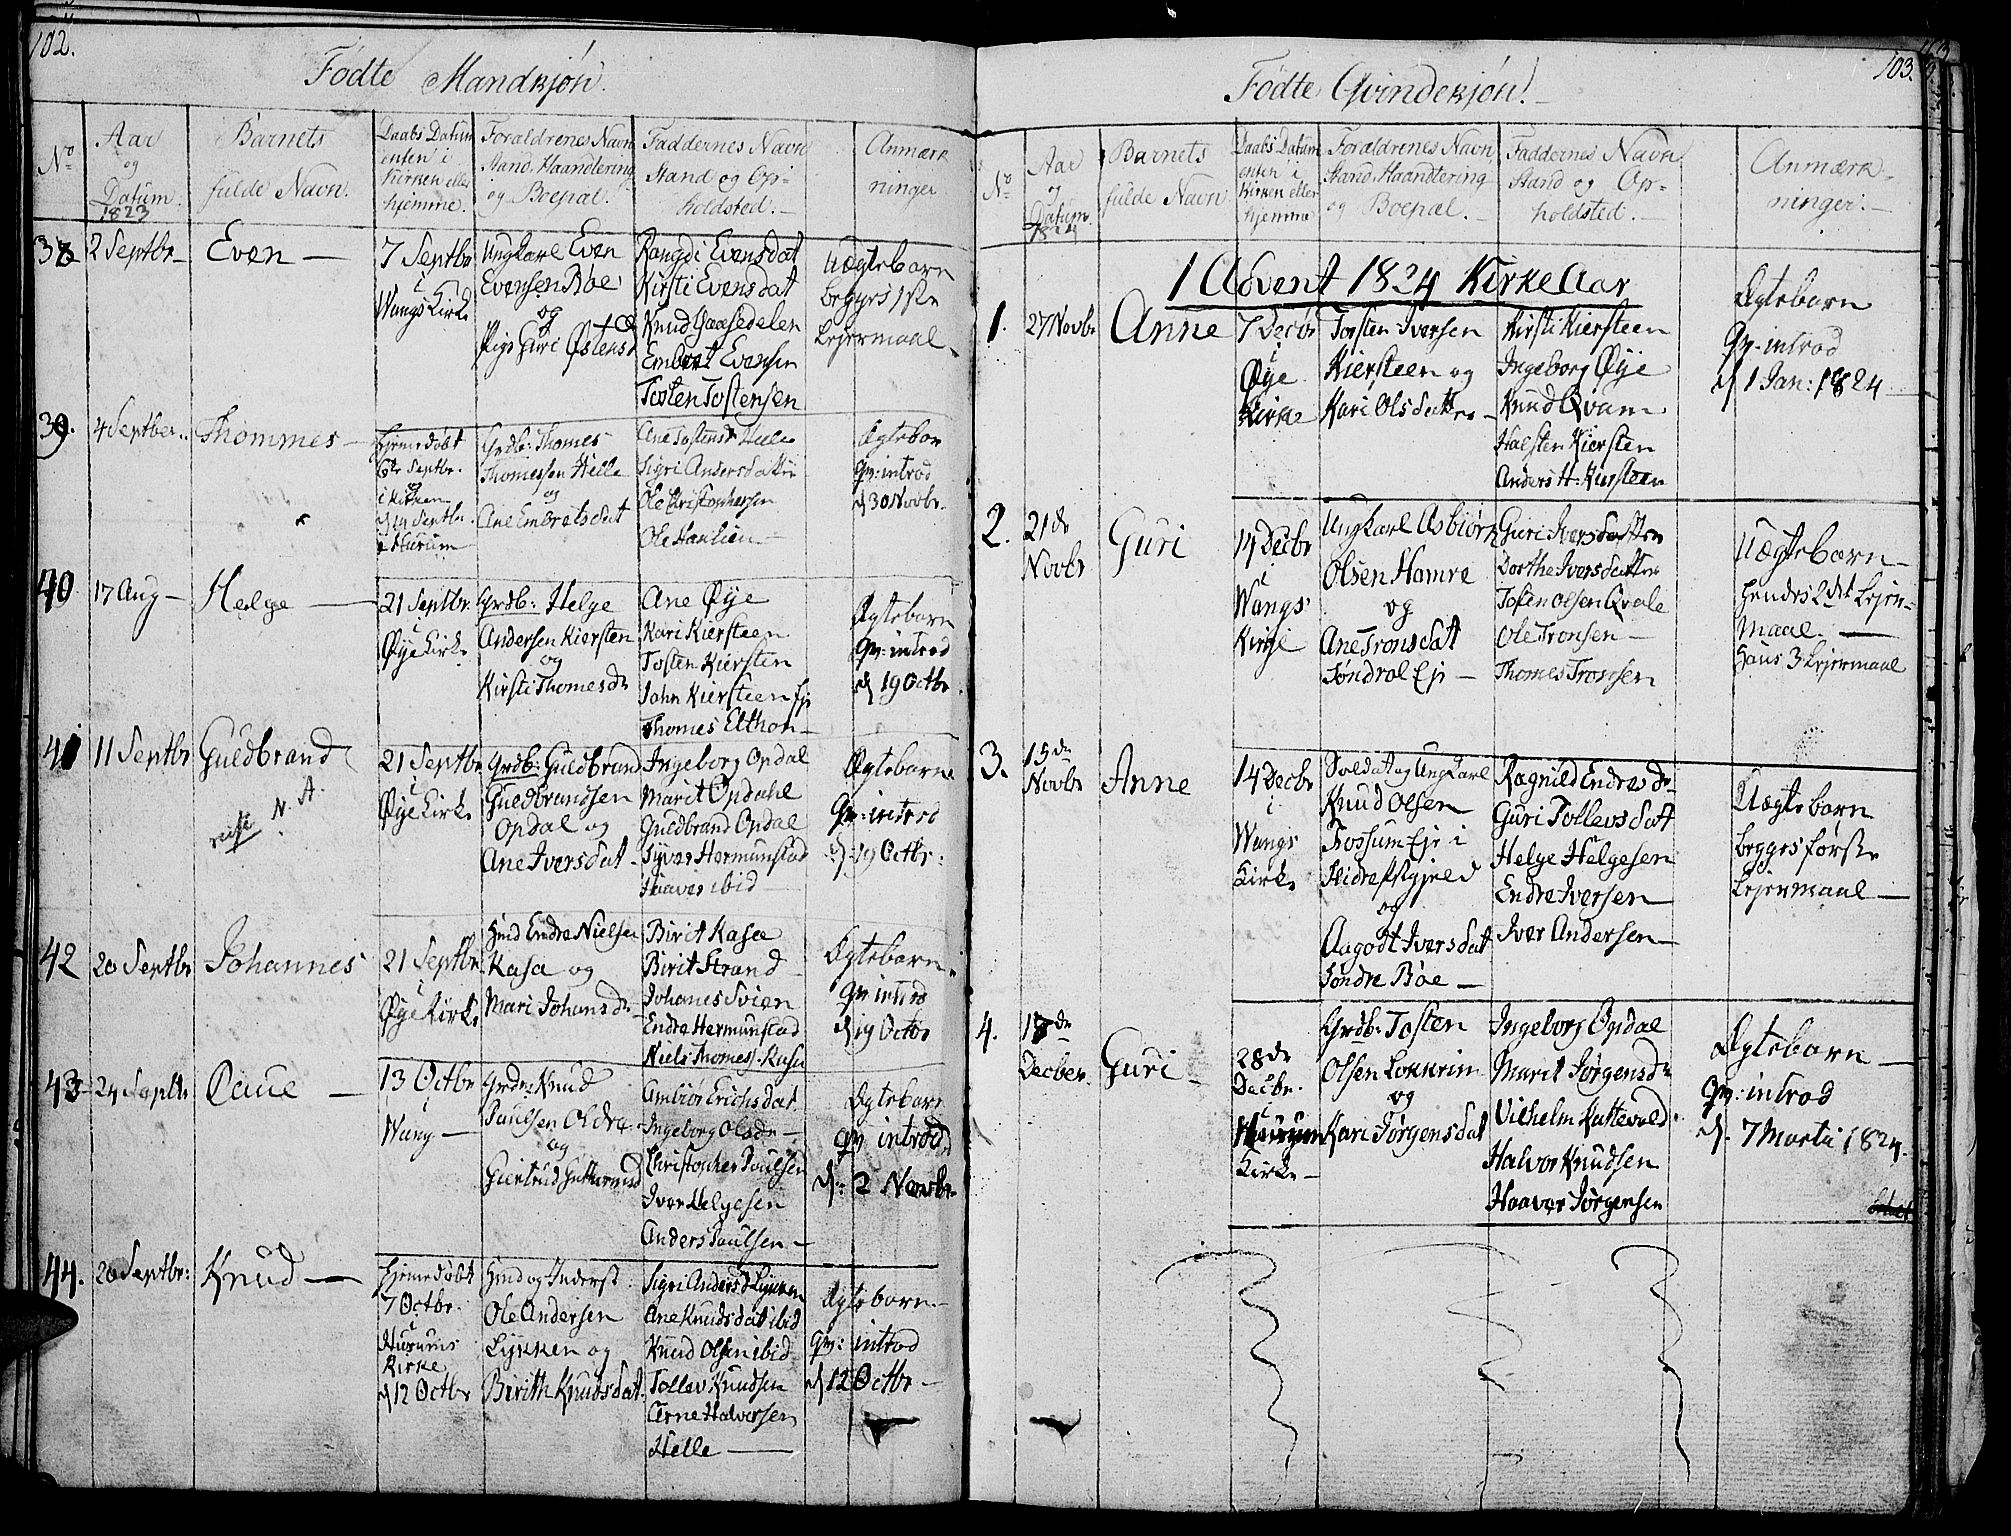 102.
Fødte Mandkjøn.
No
Aar
og
Datum.
1823
Barnets
fulde Navn.
Daabs Datum
enten i
Kirken eller
hjemme.
Forældrenes Navn
Stand, Haandtering
og Boepæl.
Faddernes Navn
Stand og Op-
holdsted.
Anmærk
ninger
38 2 Septbr
Even
7 Septbr
i
Wangs Kirke
Ungkarl Even
Evensen Bøe
og
Pige Guri Østensd
Rangdi Evensdat
Kirsti Evensdat
Knud Gaasedelen
Embret Evensen
Tosten Tostensen
Uægtebarn
begges 1ste
Lejermaal
39. 4 Septber.
Thommes
Hjemedøbt
Septbr.
og
i Kirken
d 14 Septbr.
i Hurum
Grdb: Thomes
Thomessen Helle
og
Ane Embretsdat
Ane Tostensd Helle
Sigri Andersdatter
Ole Christophersen
Ole
Ægtebar
Qv: introd
d 30 Novbr.
40 17 Aug
Helge
21 Septbr.
i
Øye Kirke
Grdb: Helge
Andersen Kiersten
og
Kirsti Thomesdr
Ane Øye
Kari Kiersteen
Tosten Kiersten
John Kiersteen Ejr
Thomes Elthon
Ægtebarn
Qv: introd
d 19 Octbr.
41 11 Septbr
Guldbrand
reist N. A.
21 Septbr.
i
Øye Kirke
Grdb: Guldbrand
Guldbrandsen
Opdal og
Ane Iversdat
Ingeborg Opdal
Marit Opdahl
Guldbrand Opdal
Syver Hermunstad
Haaver ibid
Ægtebarn
Qv: introd
d: 19 Octbr:
42 20 Septbr
Johannes
21 Septbr.
i
Øye Kirke
Hmd Endre Nielsen
Kasa og
Mari Johansdr
Birit Kasa
Birit Strand
Johanes Svien
Endre Hermunstad
Niels Thomes. Kasa
Ægtebarn
Qv: introd
d 19 Octbr
43 24 Septbr
Paul
13 Octbr
i
Wang
Grdr: Knud
Paulsen Oldre
og
Giertrud Guttormsd
Ambiør Erichsdat
Ingeborg Olsdr
Christopher Paulsen
Iver Helgesen
Anders Paulsen
Ægtebarn
Qv introd
d: 2 Novbr
44. 20 Septbr:
Knud
Hjemedøbt
7 Octbr.
i
Hurums
Kirke
d 12 Octbr
Hmd og Inderst
Ole Andersen
Lykken og
Birith Knudsdat.
Sigri Andersd Lykken
Ane Knudsdat ibid
Knud Olsen ibid
Tollev Knudsen
Arne Halvorsen
Helle
Ægtebarn.
Qv: introd
d 12 Octbr
103.
Fødte Qvindekjøn!
No
Aar
og
Datum
1824
Barnets
fulde Navn
Daabs Datum
enten i
Kirken eller
hjemme
Forældrenes Navn
Stand, Haandtering
og Boepæl.
Faddernes Navn
Stand og Op-
holdsted.
Anmærk-
ninger.
1 Advent 1824 Kirke Aar
1. 27 Novbr
Anne
7 Decbr
i
Øye
Kirke
Tosten Iversen
Kiersteen og
Kari Olsdatter
Kirsti Kiersteen
Ingeborg Øye
Knud Qvam
Halsten Kiersten
Anders H: Kiersteen
Ægtebarn
Qv: introd
d 1 Jan: 1824
2. 21de
Novbr
Guri
14 Decbr
i
Wangs
Kirke
Ungkarl Asbiørn
Olsen Hamre
og
Ane Tronsdat
Søndrol Ejr
Guri Iversdatter
Dorthe Iversdatter
Tosten Olsen Qvale
Ole Tronsen
Thomes Tronsen
Uægtebarn
hendes 2det Lejer-
maal.
Hans 3 Lejermaal
3. 15de
Novbr
Anne
14 Decbr
i
Wangs
Kirke
Soldat og Ungkarl
Knud Olsen
Fossum Ejr i
Slidre Pstgjeld
og
Aagodt Iversdat
Søndre Bøe
Ragnild Endresdr
Guri Tollevsdat
Helge Helgesen
Endre Iversen
Iver Andersen
Uægtebarn
begges første
Lejermaal
4. 18de
Decber.
Guri
28de
Decbr.
i
Hurum
Kirke
Grdb: Tosten
Olsen Lokkrim
og
Kari Jørgensdat
Ingeborg Opdal
Marit Jørgensdr
Vilhelm Kattevold
Halvor Knudsen
Haavor Jørgensen
Ægtebarn
Qv: introd
d. 7 Martii 1824.